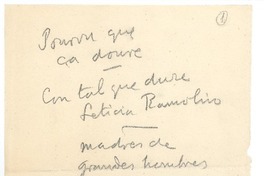 1
Pourvu que
ça doure
Con tal que dure
Leticia Ramolino
madres de
grandes hombres